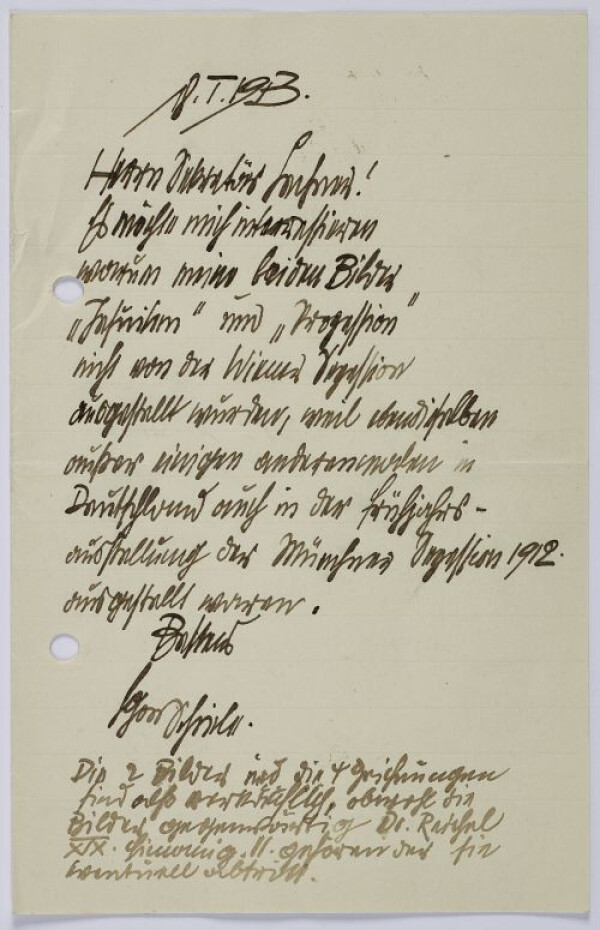 8.I.1913.
Herrn Sekretär Lechner!
Es möchte mich interessieren
warum meine beiden Bilder
„Jesuiten“ und „Prozession“
nicht von der Wiener Sezession
ausgestellt wurden, weil ebendieselben
außer einigen anderenmalen in
Deutschland auch in der Frühjahrs-
ausstellung der Münchner Sezession 1912.
ausgestellt waren.
Bestens
Egon Schiele.
Die 2 Bilder und die 4 Zeichnungen
sind also verkäuflich, obwohl die
Bilder gegenwärtig Dr. Reichel
XIX. 11. gehören der sie
eventuell abtritt.